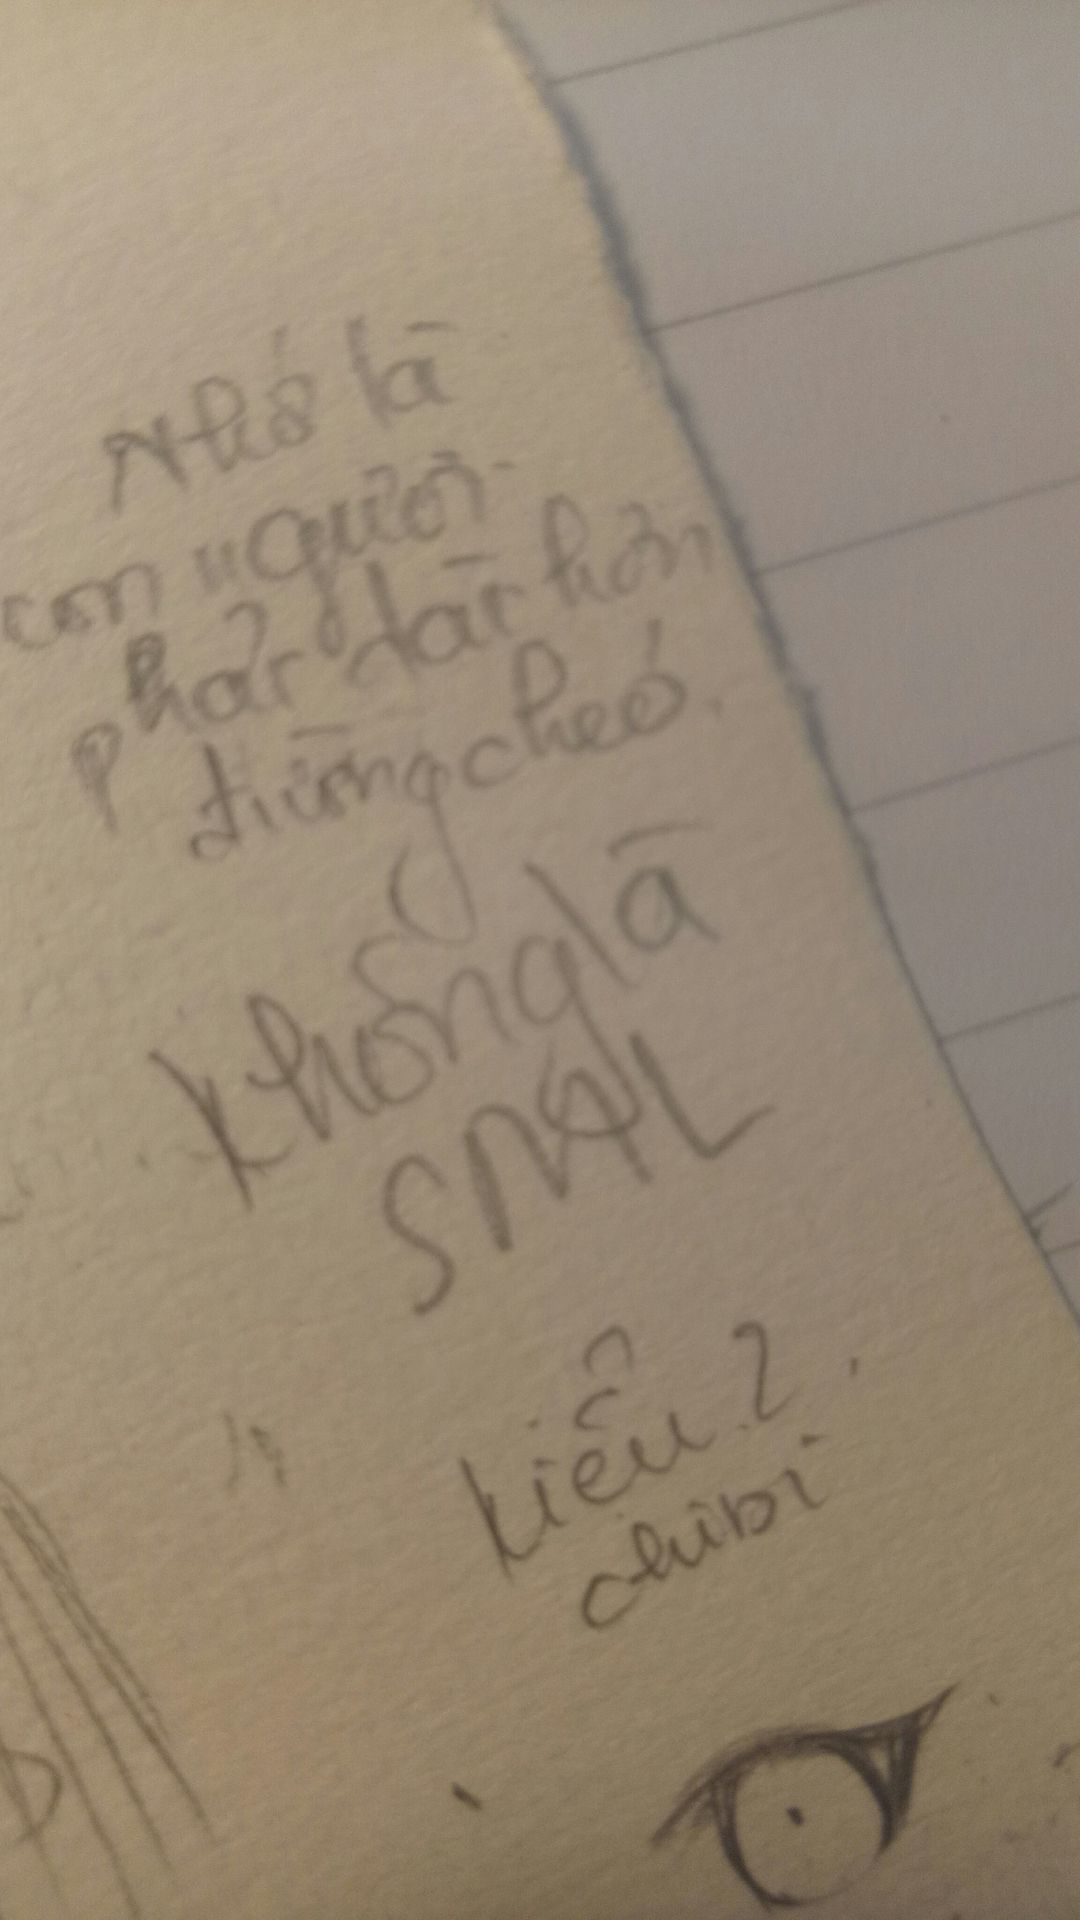 Nhớ là
con người
phải dài hơn
đường chéo.
Không là
SML
kiểu 2
chibi